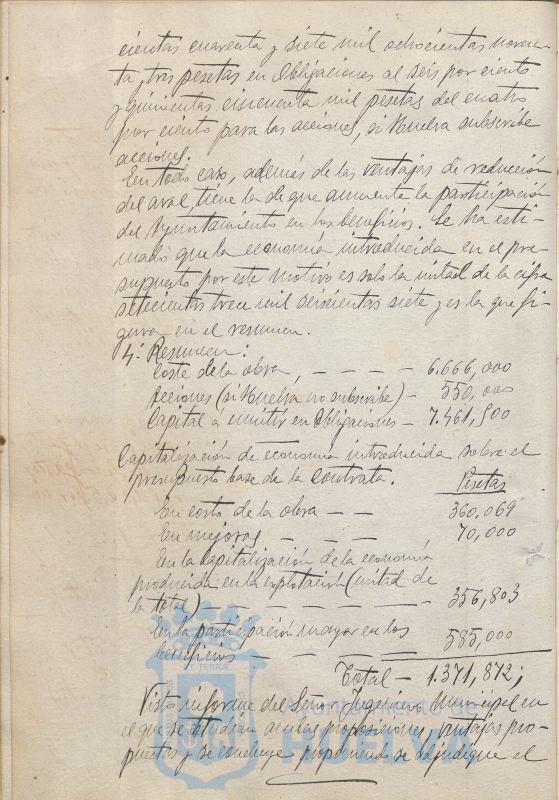 cientas cuarenta y siete mil ochocientas noven-
ta y tres pesetas en Obligaciones al seis por ciento
y quinientas cincuenta mil pesetas del cuatro
por ciento para las acciones, si Huelva subscribe
acciones.
En todo caso, además de las ventajas de reducción
del aval, tiene la de que aumenta la participación
del Ayuntamiento en los beneficios. Se ha esti-
mado que la economía introducida en el pre-
supuesto por este motivo es solo la mitad de la cifra
setecientas trece mil seiscientas siete y es la que fi-
gura en el resumen.
4º Resumen:
Coste de la obra, - - - - 6.666,000
Acciones (si Huelva no subscribe) - 550,000
Capital á emitir en Obligaciones - 7.461,500
Capitalización de economía introducida sobre el
presupuesto base de la contrata. Pesetas
En costo de la obra - - 360,069
En mejoras - - - - 70,000
En la capitalización de la economía
producida en la explotación (mitad de
la total) - - - - - - 356,803
En la participación mayor en los
beneficios - - - - - 585,000
Total - 1.371,872;
Visto informe del Señor Ingeniero Municipal en
el que se estudian ambas proposiciones, ventajas pro-
puestas y se concluye proponiendo se adjudique el
AYUNTAMIENTO DE
HUELVA